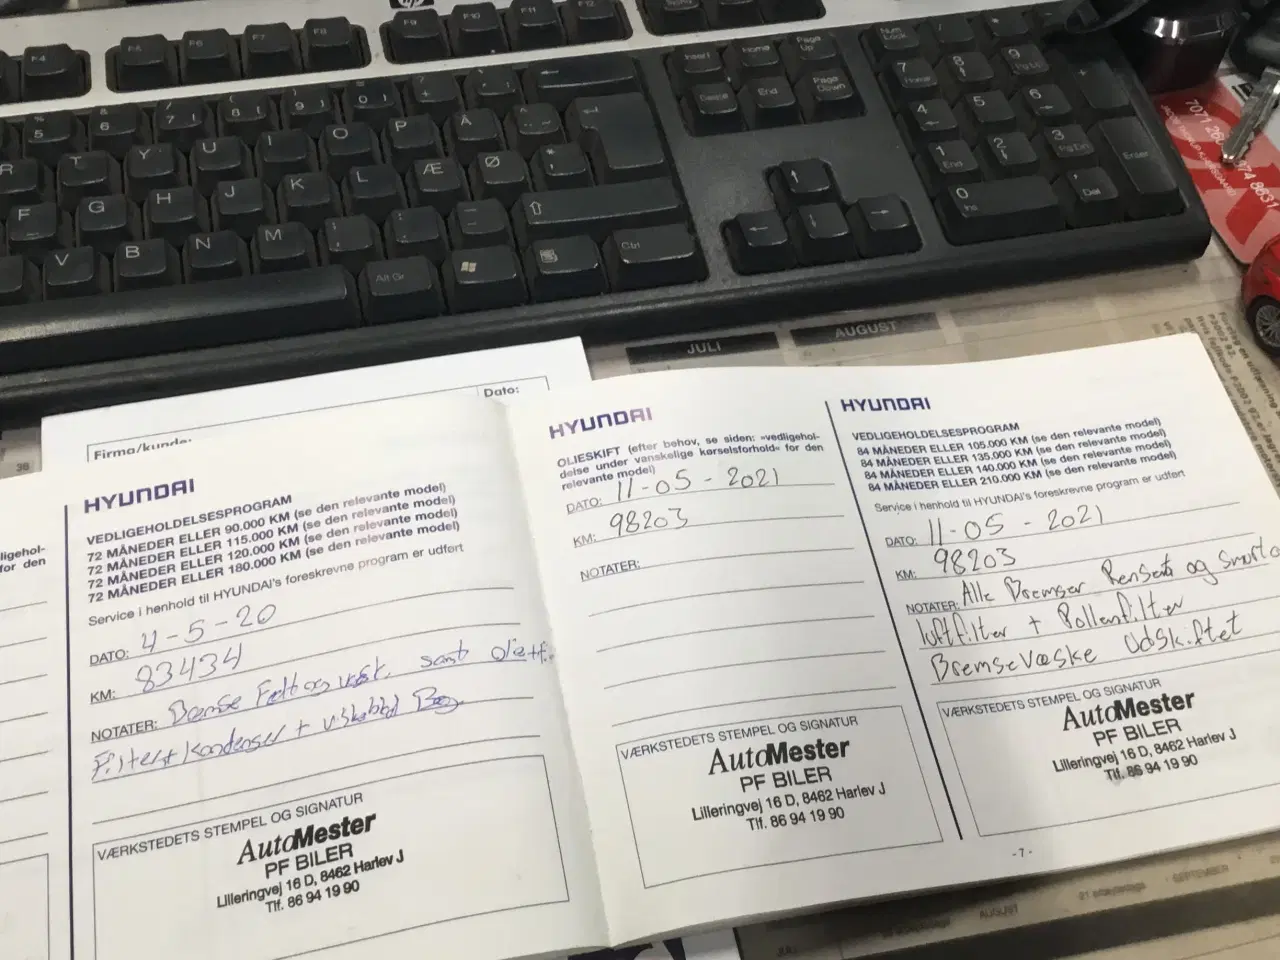 F4
F5
F6
F7
F8
F9
F10
F11
F12
Insert
Home
Page Up
Delete
End
Page Down
Num Lock
7 Home
8
9 Pg Up
4
5
6
1 End
2
3 Pg Dn
0 Ins
Del
Enter
R T Y U I O P Å
F G H J K L Æ Ø
V B N M
Alt Gr
Ctrl
JULI
AUGUST
Dato:
Firma/kunde:
36
ligehol-
for den
HYUNDAI
VEDLIGEHOLDELSESPROGRAM
72 MÅNEDER ELLER 90.000 KM (se den relevante model)
72 MÅNEDER ELLER 115.000 KM (se den relevante model)
72 MÅNEDER ELLER 120.000 KM (se den relevante model)
72 MÅNEDER ELLER 180.000 KM (se den relevante model)
Service i henhold til HYUNDAI's foreskrevne program er udført
DATO: 4-5-20
KM: 83434
NOTATER: samt
+
VÆRKSTEDETS STEMPEL OG SIGNATUR
AutoMester
PF BILER
Lilleringvej 16 D, 8462 Harlev J
Tlf. 86 94 19 90
HYUNDAI
OLIESKIFT (efter behov, se siden: »vedligehol-
delse under vanskelige kørselsforhold« for den
relevante model)
DATO: 11-05-2021
KM: 98203
NOTATER:
VÆRKSTEDETS STEMPEL OG SIGNATUR
AutoMester
PF BILER
Lilleringvej 16 D, 8462 Harlev J
Tlf. 86 94 19 90
HYUNDAI
VEDLIGEHOLDELSESPROGRAM
84 MÅNEDER ELLER 105.000 KM (se den relevante model)
84 MÅNEDER ELLER 135.000 KM (se den relevante model)
84 MÅNEDER ELLER 140.000 KM (se den relevante model)
84 MÅNEDER ELLER 210.000 KM (se den relevante model)
Service i henhold til HYUNDAI's foreskrevne program er udført
DATO: 11-05-2021
KM: 98203
NOTATER: Alle Bremser Renset og
luftfilter + Pollenfilter
Bremsevæske Udskiftet
VÆRKSTEDETS STEMPEL OG SIGNATUR
AutoMester
PF BILER
Lilleringvej 16 D, 8462 Harlev J
Tlf. 86 94 19 90
- 7 -
AUGUST
SEPTEMBER
JULI